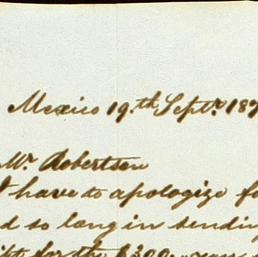 Mexico 19.th Septr. 187
Mr. Robertson
I have to apologize fo
d so long in sendin
for the $300